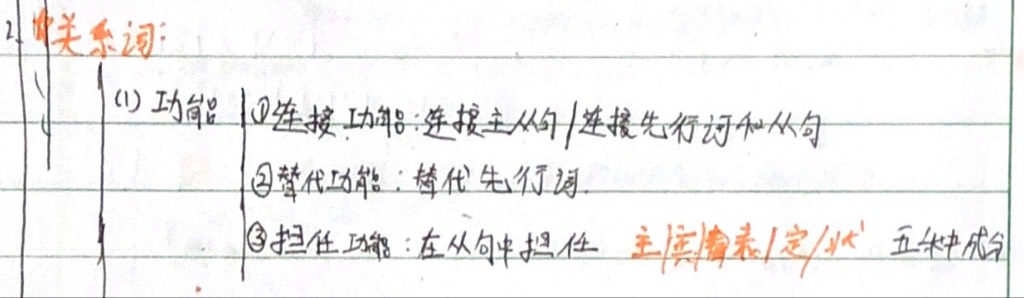 2. 关系词:
(1) 功能 ①连接功能:连接主从句/连接先行词和从句
②替代功能:替代先行词.
③担任功能:在从句中担任 主/宾/表/定/状 五种成分